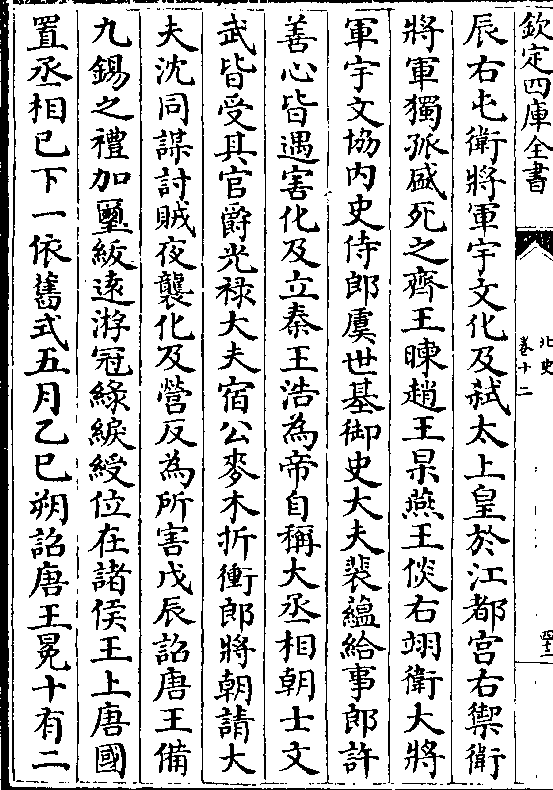 欽定四庫全書
北史
卷十二
辰右屯衛將軍宇文化及弒太上皇於江都宫右禦衛
將軍獨孤盛死之齊王暕趙王杲燕王倓右翊衛大將
軍宇文協内史侍郎虞世基御史大夫裴藴給事郎許
善心皆遇害化及立秦王浩為帝自稱大丞相朝士文
武皆受其官爵光禄大夫宿公麥木折衝郎將朝請大
夫沈同謀討賊夜襲化及營反為所害戊辰詔唐王備
九錫之禮加璽紱逺游冠緑綟綬位在諸侯王上唐國
置丞相已下一依舊式五月乙巳朔詔唐王冕十有二